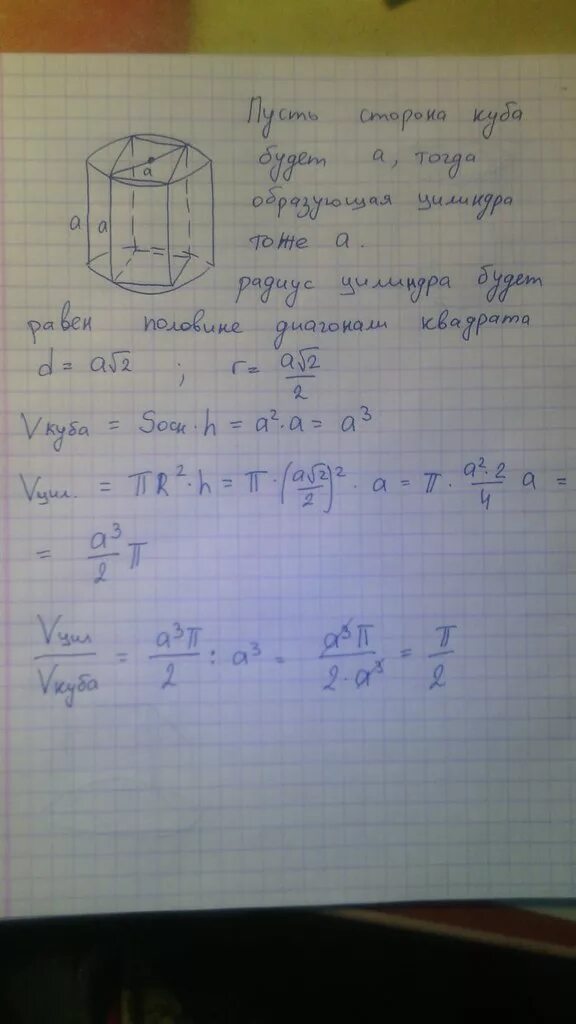 Пусть сторона куба
будет a, тогда
образующая цилиндра
тоже a.
радиус цилиндра будет
равен половине диагонали квадрата
a
a
a
d = a√2 ; r = a√2/2
Vкуба = Sосн·h = a²·a = a³
Vцил. = πR²·h = π·(a√2/2)²·a = π·a²·2/4 a =
= a³/2 π
Vцил/Vкуба = a³π/2 : a³ = a³π/2·a³ = π/2